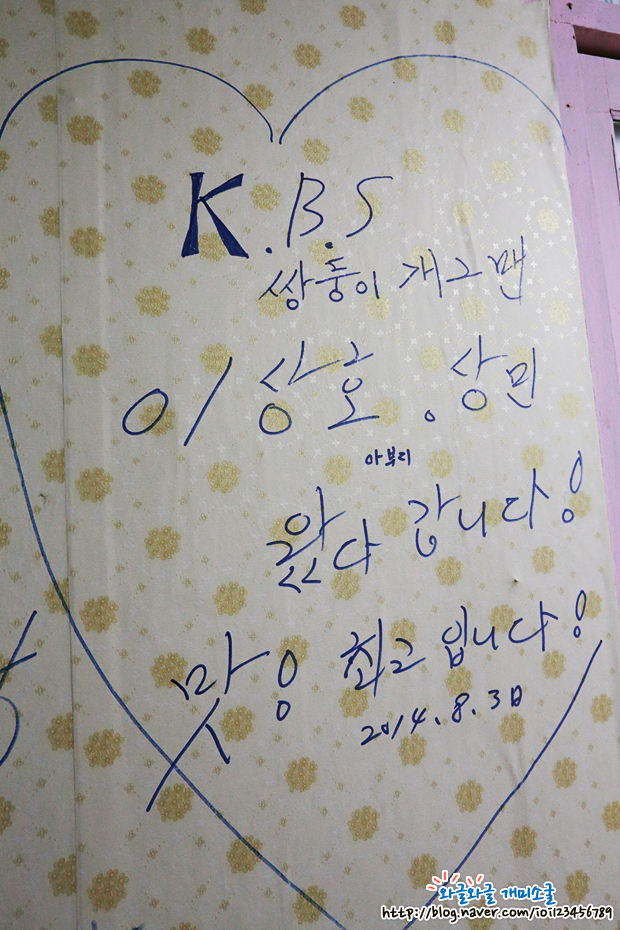 K.B.S
쌍둥이 개그맨
이상호.상민
아부지
왔다 갑니다!
맛잉 최고입니다!
2014.8.3日
와글와글 개미소굴
http://blog.naver.com/ioi123456789